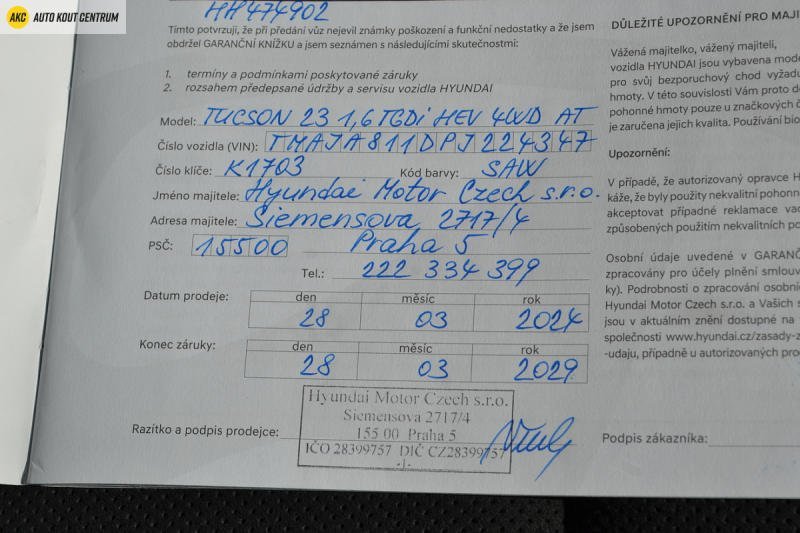 AKC AUTO KOUT CENTRUM
HH474902
Tímto potvrzuji, že při předání vůz nejevil známky poškození a funkční nedostatky a že jsem
obdržel GARANČNÍ KNÍŽKU a jsem seznámen s následujícími skutečnostmi:
1. termíny a podmínkami poskytované záruky
2. rozsahem předepsané údržby a servisu vozidla HYUNDAI
Model: TUCSON 23 1,6 TGDi HEV 4WD AT
Číslo vozidla (VIN): TMAJA811DPJ224347
Číslo klíče: K1703 Kód barvy: SAW
Jméno majitele: Hyundai Motor Czech s.r.o.
Adresa majitele: Siemensova 2717/4
PSČ: 15500 Praha 5
Tel.: 222 334 399
Datum prodeje: den měsíc rok
28 03 2024
Konec záruky: den měsíc rok
28 03 2029
Hyundai Motor Czech s.r.o.
Siemensova 2717/4
155 00 Praha 5
Razítko a podpis prodejce:
IČO 28399757 DIČ CZ28399757
-1-
DŮLEŽITÉ UPOZORNĚNÍ PRO MAJI
Vážená majitelko, vážený majiteli,
vozidla HYUNDAI jsou vybavena mode
pro svůj bezporuchový chod vyžadu
hmoty. V této souvislosti Vám proto d
pohonné hmoty pouze u značkových č
je zaručena jejich kvalita. Používání bio
Upozornění:
V případě, že autorizovaný opravce H
káže, že byly použity nekvalitní pohonn
akceptovat případné reklamace vad
způsobených použitím nekvalitních po
Osobní údaje uvedené v GARANČ
zpracovány pro účely plnění smlouv
ky). Podrobnosti o zpracování osobníc
Hyundai Motor Czech s.r.o. a Vašich s
jsou v aktuálním znění dostupné na
společnosti www.hyundai.cz/zasady-z
-udaju, případně u autorizovaných prod
Podpis zákazníka: